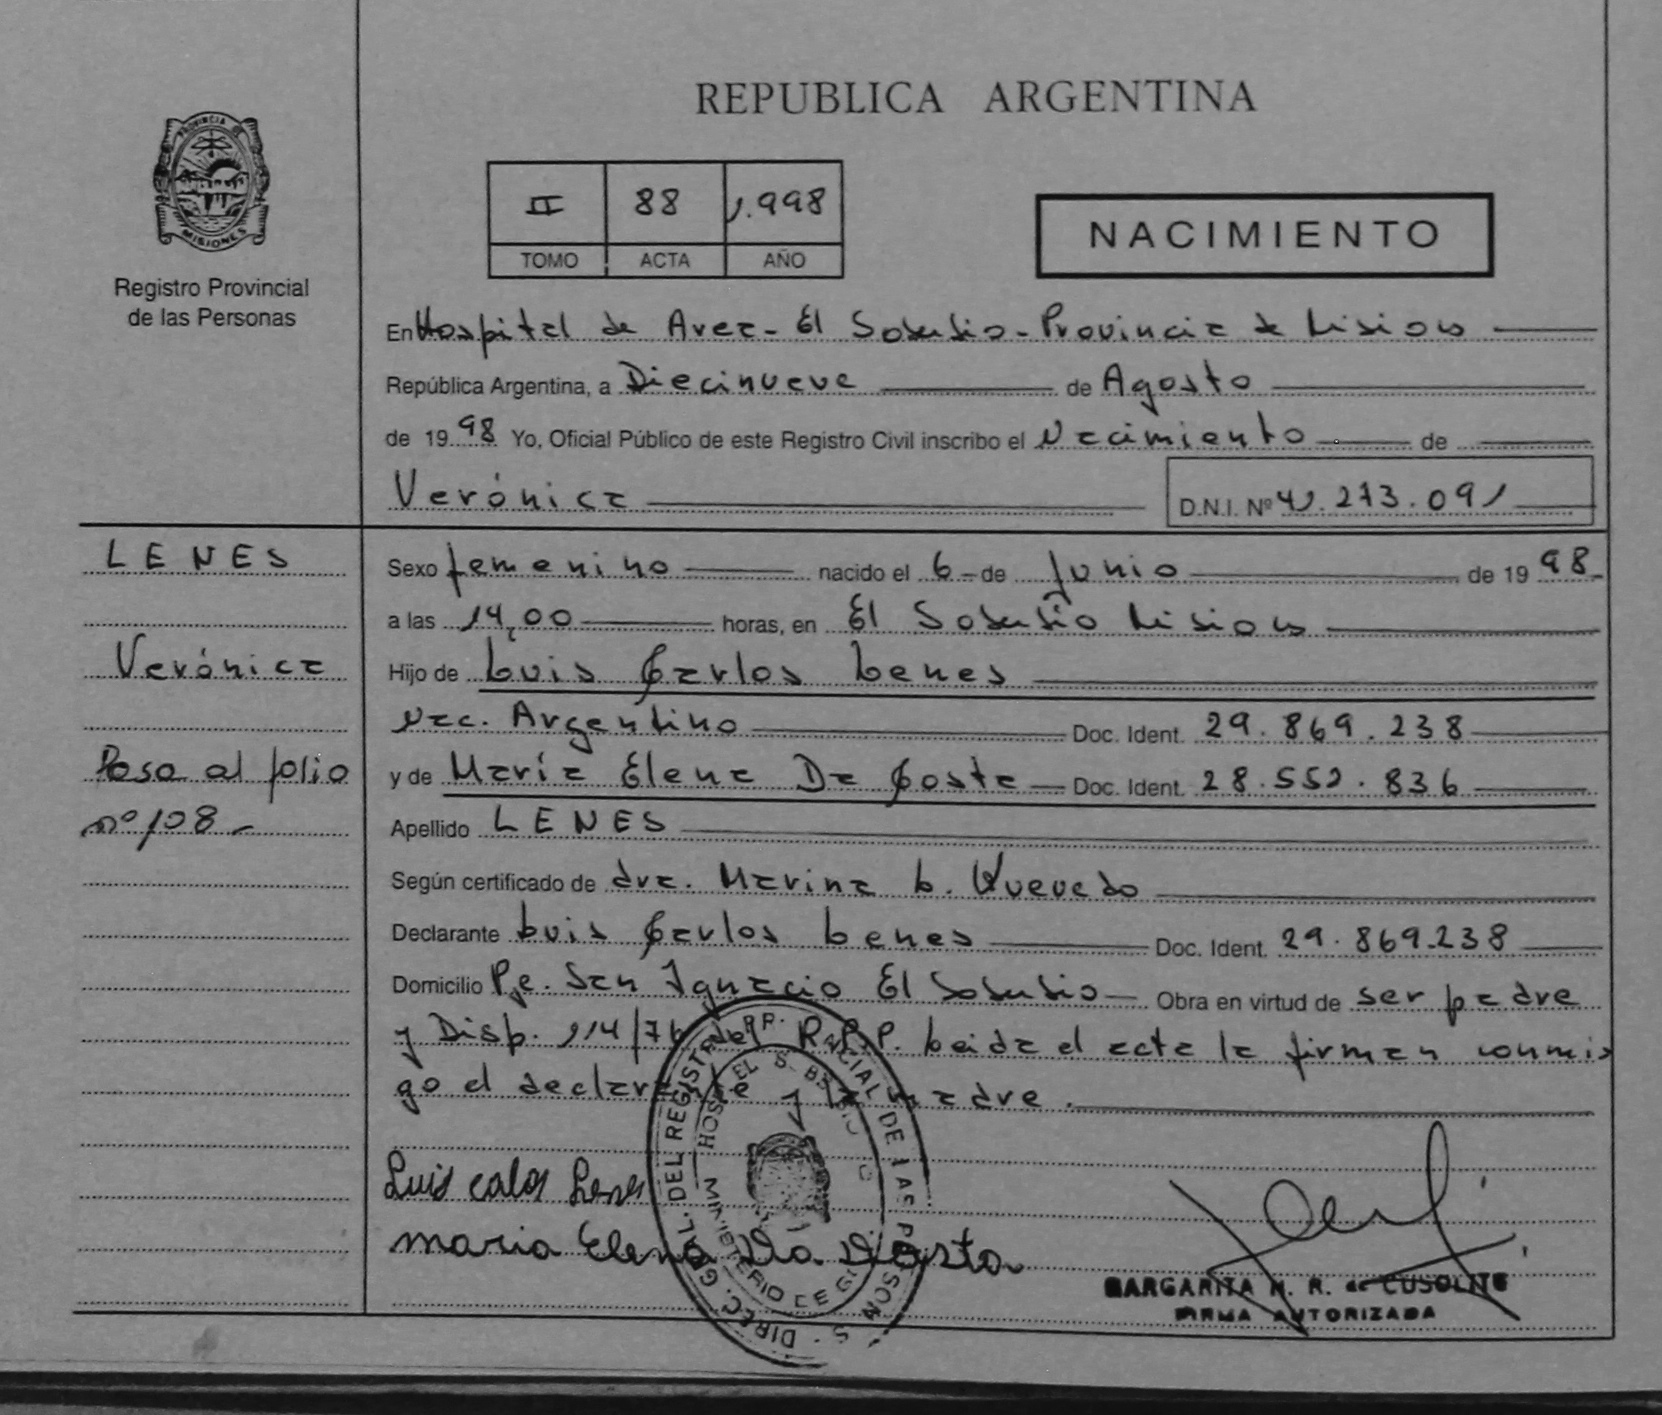 REPUBLICA ARGENTINA
PROVINCIA DE MISIONES
Registro Provincial
de las Personas
II 88 1.998
TOMO ACTA AÑO
NACIMIENTO
En Hospital de Area - El Soberbio - Provincia de Misiones
República Argentina, a Diecinueve de Agosto
de 1998 Yo, Oficial Público de este Registro Civil inscribo el Nacimiento de
Verónica D.N.I. Nº 41.273.091
LENES
Sexo femenino nacido el 6 - de Junio de 1998
a las 14,00 horas, en El Soberbio Misiones
Verónica
Hijo de Luis Carlos Lenes
Nac. Argentino Doc. Ident. 29.869.238
Pasa al folio
y de María Elena Da Costa Doc. Ident. 28.552.836
nº 108 -
Apellido LENES
Según certificado de dra. Marina L. Quevedo
Declarante Luis Carlos Lenes Doc. Ident. 29.869.238
Domicilio Pje. San Ignacio El Soberbio Obra en virtud de ser padre
y Disp. 114/76 del R.P.P. Leida el acta la firman conmi
go el declarante y la madre.
Luis calos Lenes
maria Elena Da Costa
DIREC. GRAL. DEL REGISTRO PROVINCIAL DE LAS PERSONAS
MINISTERIO DE
MARGARITA H. R. de CUSOLITO
FIRMA AUTORIZADA